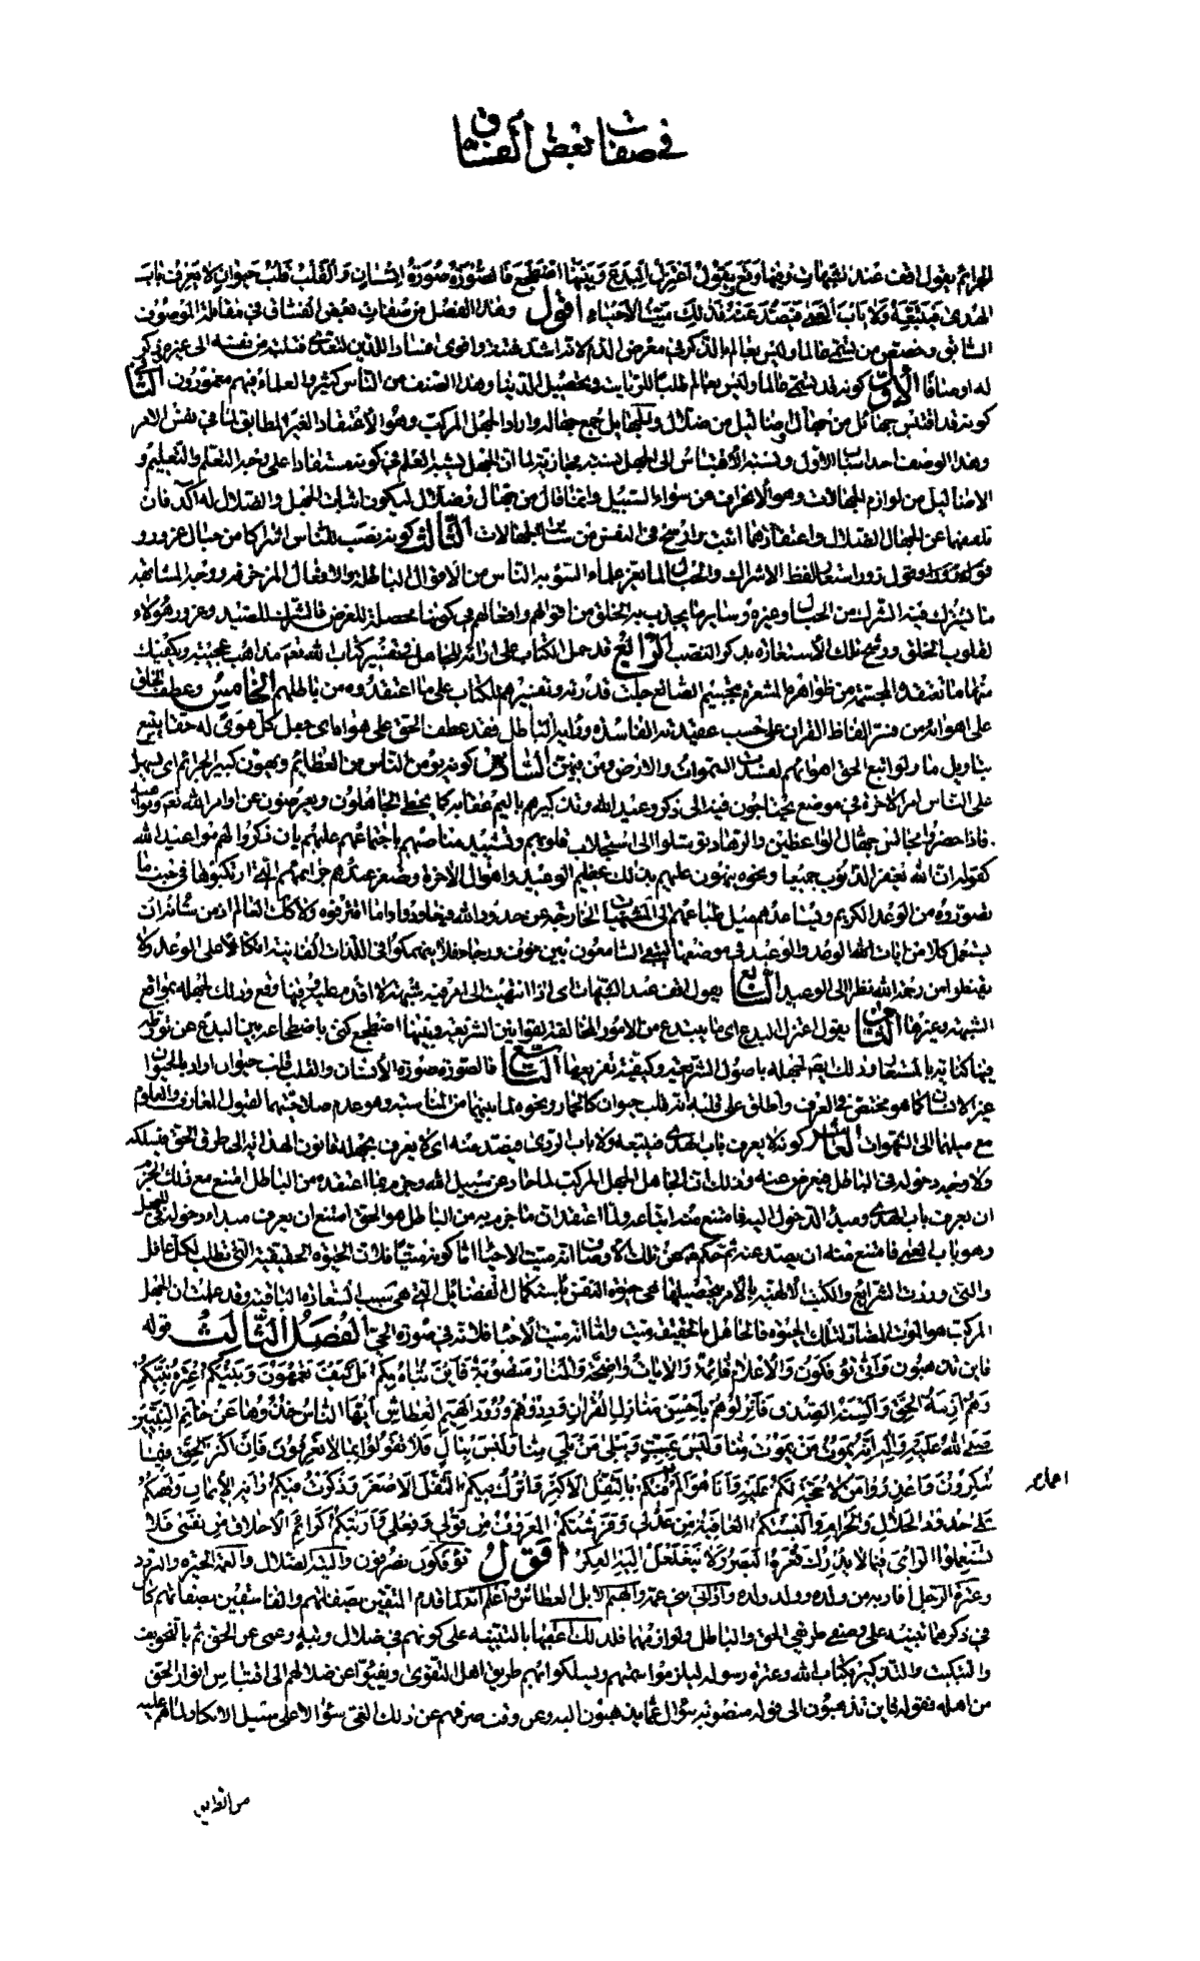 في صفات بعض الفساق
الجرائم يقول اقف عند الشبهات وفيها وقع ويقول اعتزل البدع وبينها اضطجع فالصورة صورة انسان والقلب قلب حيوان لا يعرف باب
الهدى فيتبعه ولا باب العمى فيصد عنه فذلك ميت الاحياء اقول وهذا الفصل من صفات بعض الفساق في مقابلة الموصوف
السابق وخصص من تسمى عالما وليس بعالم بالذكر في معرض الذم لانه اشد فتنة واقوى فسادا للدين لتعدى فتنته من نفسه الى غيره ذكر
له اوصافا الاول كونه قد تسمى عالما وليس بعالم طلبا للرياسة وتحصيل الدنيا وهذا الصنف من الناس كثير والعلماء فيهم مغمورون الثاني
كونه قد اقتبس جهائل من جهال واضاليل من ضلال والجهايل جمع جهالة واراد الجهل المركب وهو الاعتقاد الغير المطابق لما في نفس الامر
وهذا الوصف احد اسباب الاول ونسبة الاقتباس الى الجهل نسبة مجازية لما ان الجهل يشبه العلم في كونه مستفادا على وجه التعلم والتعليم و
الاضاليل من لوازم الجهالات وهو الانحراف عن سواء السبيل وانما قال من جهال وضلال ليكون اثبات الجهل والضلال له آكد فان
تلقفهما عن الجهال الضلال واعتقادهما اثبت وارسخ في النفس من سائر الجهالات الثالث كونه نصب للناس اشراكا من حبال غرور و
قول زور واستعار لفظ الاشراك والحبال لما يغر علماء السوء به الناس من الاقوال الباطلة والافعال المزخرفة ووجه المشابهة
ما يشترك فيه الشرك من الحبال وغيره وسائر ما يجذب به الخلق من اقوالهم وافعالهم في كونها محصلة للغرض فالشرك للصيد وغرور هؤلاء
لقلوب الخلق ورشح تلك الاستعارة بذكر النصب الرابع قد حمل الكتاب على ارائه للجاهل في تفسير كتاب الله تعالى مذاهب عجيبة ويكفيك
منها ما تعتقده المجسمة من ظواهره المشعرة بتجسيم الصانع جلت قدرته وتفسيرهم للكتاب على ما اعتقدوه من باطلهم الخامس وعطف الحق
على اهوائه من فسر الفاظ القرآن على حسب عقيدته الفاسدة ورايه الباطل فقد عطف الحق على هواه اى جعل كل هوى له حقا يتبع
بتاويل ما ولو اتبع الحق اهواءهم لفسدت السموات والارض ومن فيهن السادس كونه يؤمن الناس من العظائم ويهون كبير الجرائم اى يسهل
على الناس امر الاخرة في موضع يحتاجون فيه الى ذكر وعيد الله وتذكيرهم باليم عقابه كما يخطى الجاهلون ويعرضون عن اوامر الله تعالى ونواهيه
فاذا حضروا مجالس جهال الواعظين والزهاد توسلوا الى استجلاب قلوبهم وتشييد مناصبهم باجتماعهم عليهم بان ذكروا لهم نواعيد الله
كقوله ان الله يغفر الذنوب جميعا ونحوه يهون عليهم بذلك عظيم الوعيد واهوال الاخرة وصغر عندهم جرائمهم التي ارتكبوها في جنب ما
تصوروه من الوعد الكريم ويساعدهم ميل طباعهم الى المشتهيات الخارجة عن حدود الله فيعاودوا ما اقترفوه ولا كذلك العالم اذ من شانه ان
يستعمل كلا من ايات الله الوعد والوعيد في موضعها ليبقى السامعون بين خوف ورجاء فلا ينهمكوا في اللذات الفانية اتكالا على الوعد ولا
يقنطوا من رحمة الله نظرا الى الوعيد السابع يقول اقف عند الشبهات اى اذا انتهيت الى امر فيه شبهة لا اقدم عليه وفيها وقع وذلك لجهله بمواقع
الشبهة وغيرها الثامن يقول اعتزل البدع اى ما يبتدع من الامور المخالفة لقوانين الشريعة وبينها اضطجع كنى باضطجاعه بين البدع عن تورطه
فيها كناية بالمستعار وذلك ايضا لجهله باصول الشريعة وكيفية تفريعها التاسع فالصورة صورة الانسان والقلب قلب حيوان اراد بالحيوان
غير الانسان كما هو مختص في العرف واطلق على قلبه انه قلب حيوان كالحمار ونحوه لما بينهما من المناسبة وهو عدم صلاحيتهما لقبول المعارف والعلوم
مع ميلهما الى الشهوات العاشر كونه لا يعرف باب الهدى فيتبعه ولا باب الردى فيصد عنه اى لا يعرف بجهله قانون الهداية الى طرق الحق فيسلكه
ولا وجه دخوله في الباطل فيعرض عنه وذلك ان الجاهل الجهل المركب لما حاد عن سبيل الله وجزم بما اعتقده من الباطل امتنع مع ذلك الجزم
ان يعرف باب الهدى ومبدأ الدخول اليه فامتنع منه اتباعه ولما اعتقد ان ما جزم به من الباطل هو الحق امتنع ان يعرف مبدء دخوله في الجهل
وهو باب العمى فامتنع منه ان يصد عنه ثم حكم عن تلك الاوصاف انه ميت الاحياء اما كونه ميتا فلان الحيوة الحقيقية التي تطلب لكل عاقل
والتي وردت الشرائع والكتب الالهية بالامر بتحصيلها هي حيوة النفس باستكمال الفضائل التي هي سبب السعادة الباقية وقد علمت ان الجهل
المركب هو الموت المضاد لتلك الحيوة فالجاهل بالحقيقة ميت واما انه ميت الاحياء فلانه في صورة الحي الفصل الثالث قوله
فاين تذهبون وانى تؤفكون والاعلام قائمة والايات واضحة والمنار منصوبة فاين يتاه بكم بل كيف تعمهون وبينكم عترة نبيكم
وهم ازمة الحق والسنة الصدق فانزلوهم باحسن منازل القران وردوهم ورود الهيم العطاش ايها الناس خذوها عن خاتم النبيين
صلى الله عليه واله انه يموت من يموت منا وليس بميت ويبلى من بلي منا وليس ببال فلا تقولوا بما لا تعرفون فان اكثر الحق فيما
تنكرون واعذروا من لا حجة لكم عليه وانا هو الم اعمل فيكم بالثقل الاكبر واترك فيكم الثقل الاصغر وركزت فيكم راية الايمان ووقفتكم
على حدود الحلال والحرام والبستكم العافية من عدلى وفرشتكم المعروف من قولى وفعلى واريتكم كرائم الاخلاق من نفسى فلا
تستعملوا الراى فيما لا يدرك قعره البصر ولا يتغلغل اليه الفكر اقول تؤفكون تصرفون والتيه الضلال والعمه الحيرة والتردد
وعترة الرجل اقاربه من ولده وولد ولده وادانى بنى عمه والهيم الابل العطاش واعلم انه لما قدم المتقين بصفاتهم والفاسقين بصفاتهم كان
في ذكرهما تنبيه على وصفى طريقى الحق والباطل ولوازمهما فلذلك اعقبها بالتنبيه على كونهم في ضلال وتيه وعمى عن الحق ثم بالتخويف
والتبكيت والتذكير بكتاب الله وعترة رسوله ليلزموا سمتهم ويسلكوا بهم طريق اهل التقوى ويفيئوا عن ضلالهم الى اقتباس انوار الحق
من اهله فقوله فاين تذهبون الى قوله منصوبة سؤال عما يذهبون اليه وعن وقت صرفهم عن ذلك الغى سؤالا على سبيل الانكار لما هم عليه